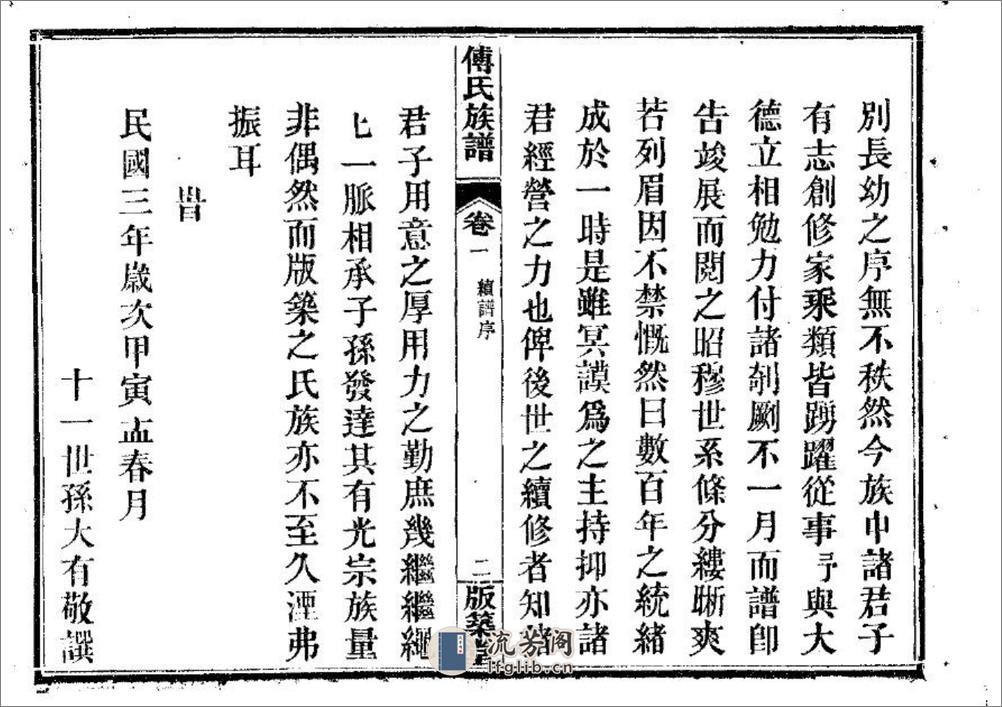 別長幼之序無不秩然今族中諸君子
有志創修家乘類皆踴躍從事予與大
德立相勉力付諸剞劂不一月而譜卽
告竣展而閱之昭穆世系條分縷晰爽
若列眉因不禁慨然曰數百年之統緒
成於一時是雖冥謨爲之主持抑亦諸
君經營之力也俾後世之續修者知諸
傅氏族譜
卷一
續譜序
二
版築堂
君子用意之厚用力之勤庶幾繼繼繩
匕一脈相承子孫發達其有光宗族量
非偶然而版築之氏族亦不至久湮弗
振耳
旹
民國三年歲次甲寅孟春月
十一世孫大有敬譔
流芳阁
lfglib.cn